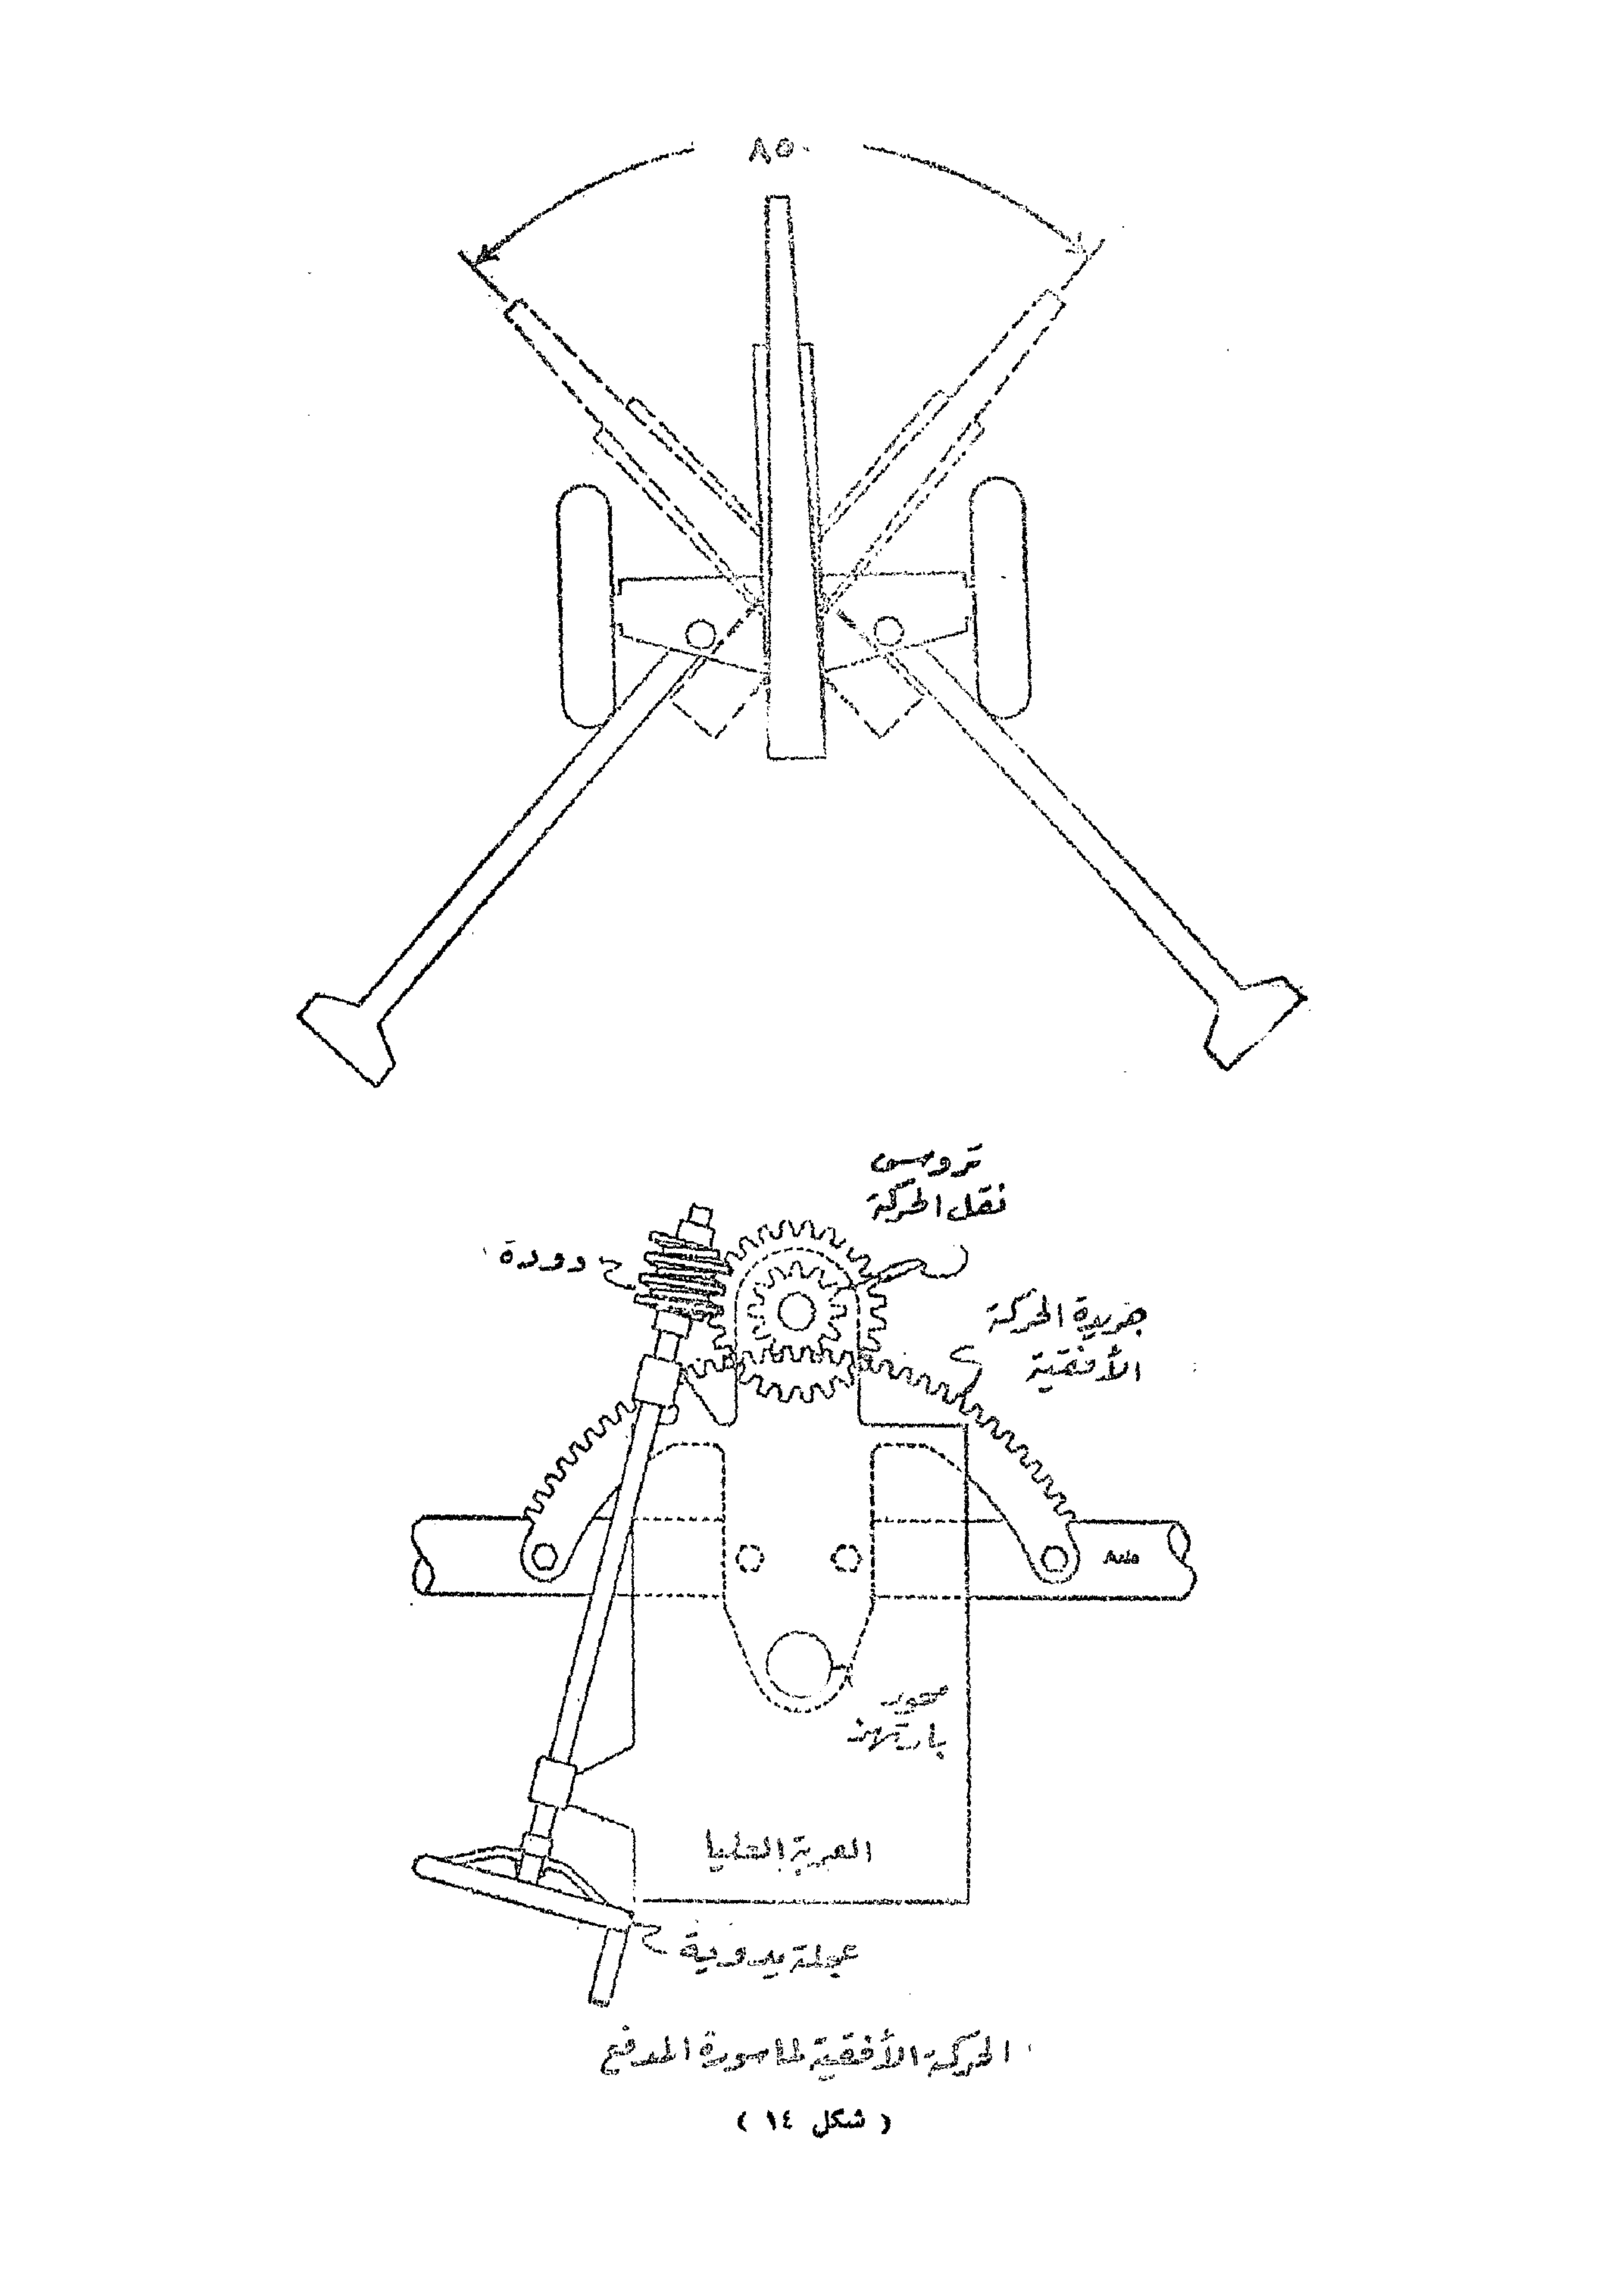 ٨٥°
تروس
نقل الحركة
دودة
جريدة الحركة
الأفقية
Axle
محور
العربة العليا
عجلة يدوية
الحركة الأفقية لماسورة المدفع
( شكل ١٤ )